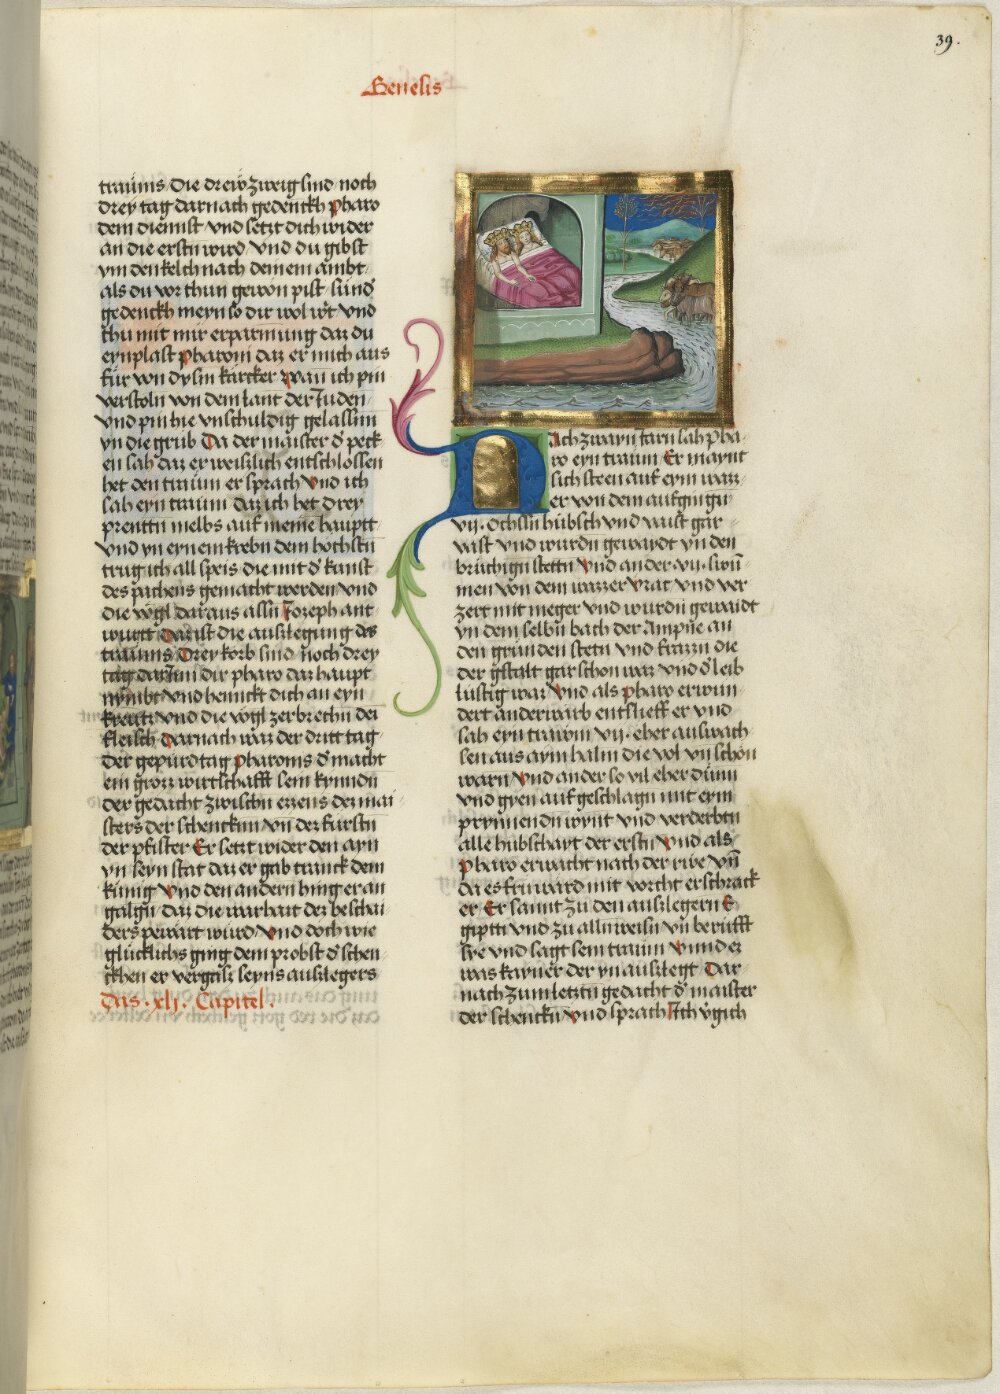 39.
Genesis
traums die drew zweig sind noch
drey tag darnach gedenckh pharo
dem dienst vnd setzt dich wider
an die erstn wird vnd du gibst
ym den kelch nach deinem ambt
als du vor thun gewon pist sund
gedenckh meyn so dir wol ist vnd
thu mit mir erparmung daz du
eynplast pharoni daz er mich aus
für von dysm karcker wan ich pin
verstoln von dem lant der Juden
vnd pin hie vnschuldig gelassen
yn die grub Da der maister d' peck
en sah daz er weislich entschlossen
het den traum er sprach vnd ich
sah eyn traum daz ich het drey
prenttn melbs auf meine haupt
vnd yn eynem krebn dem hochstn
trug ich all speis die mit d' kunst
des pachens gemacht werden vnd
die vögl daraus assn Jozeph ant
wurtt Daz ist die auslegung des
traums Drey korb sind noch drey
tag darnn dir pharo daz haupt
nymbt vnd henckt dich an eyn
kreutz vnd die vögl zerbrechn dei
fleisch Darnach waz der dritt tag
der gepurd tag pharonis d' macht
ein groz wirtschafft sein kynndn
der gedacht zwischn ezzens der mai
sters der schenckm vn der furstn
der pfister Er setzt wider den ayn
yn seyn stat daz er gab trunck dem
kunig vnd den andern hing er an
galgn daz die warhait der beschai
ders pewart wurd vnd doch wie
glucklichs ging dem probst d' schen
ckhen er vergas seyns auslegers
Das .xlj. Capitel :
Nach zwayn Jarn sah pha
ro eyn traum Er maynt
sich steen auf eym waz
er von dem aufgingn
vij. Ochssn hübsch vnd vaist gar
vaist vnd wurdn gewaydt yn den
bruchign stettn vnd ander vij. swū
men von dem wazzer vrat vnd ver
zert mit meger vnd wurdn gewaidt
yn dem selbn bach der Ampne an
den grunden stetn vnd frazzn die
der gstalt gar schon waz vnd d' leib
lustig waz vnd als pharo erwun
dert anderwarb entslieff er vnd
sah eyn trawm vij. eher auswach
sen aus aym halm die vol vn schön
warn vnd ander so vil eher dünn
vnd gyen auf geschlagn mit eym
prynnendn wynt vnd verderbtn
alle hubschayt der erstn vnd als
pharo erwacht nach der rwe vn
da es fru ward mit vorcht erschrack
er Er sannt zu den auslegern E
giptti vnd zu alln weisn vn berufft
sye vnd sagt sein traum vnnd ez
was kayner der yn auslegt Dar
nach zum letztn gedacht d' maister
der schenckn vnd sprach Ich vgich